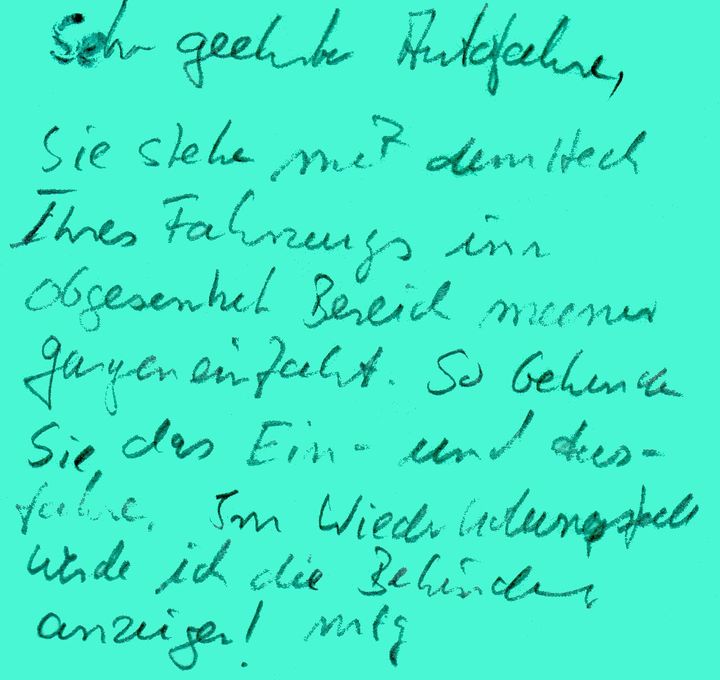 Sehr geehrter Autofahrer,
Sie stehen mit dem Heck
Ihres Fahrzeugs im
abgesenkten Bereich meiner
Garageneinfahrt. So behindern
Sie das Ein- und Aus-
fahren. Im Wiederholungsfall
werde ich die Behinderung
anzeigen! mfg